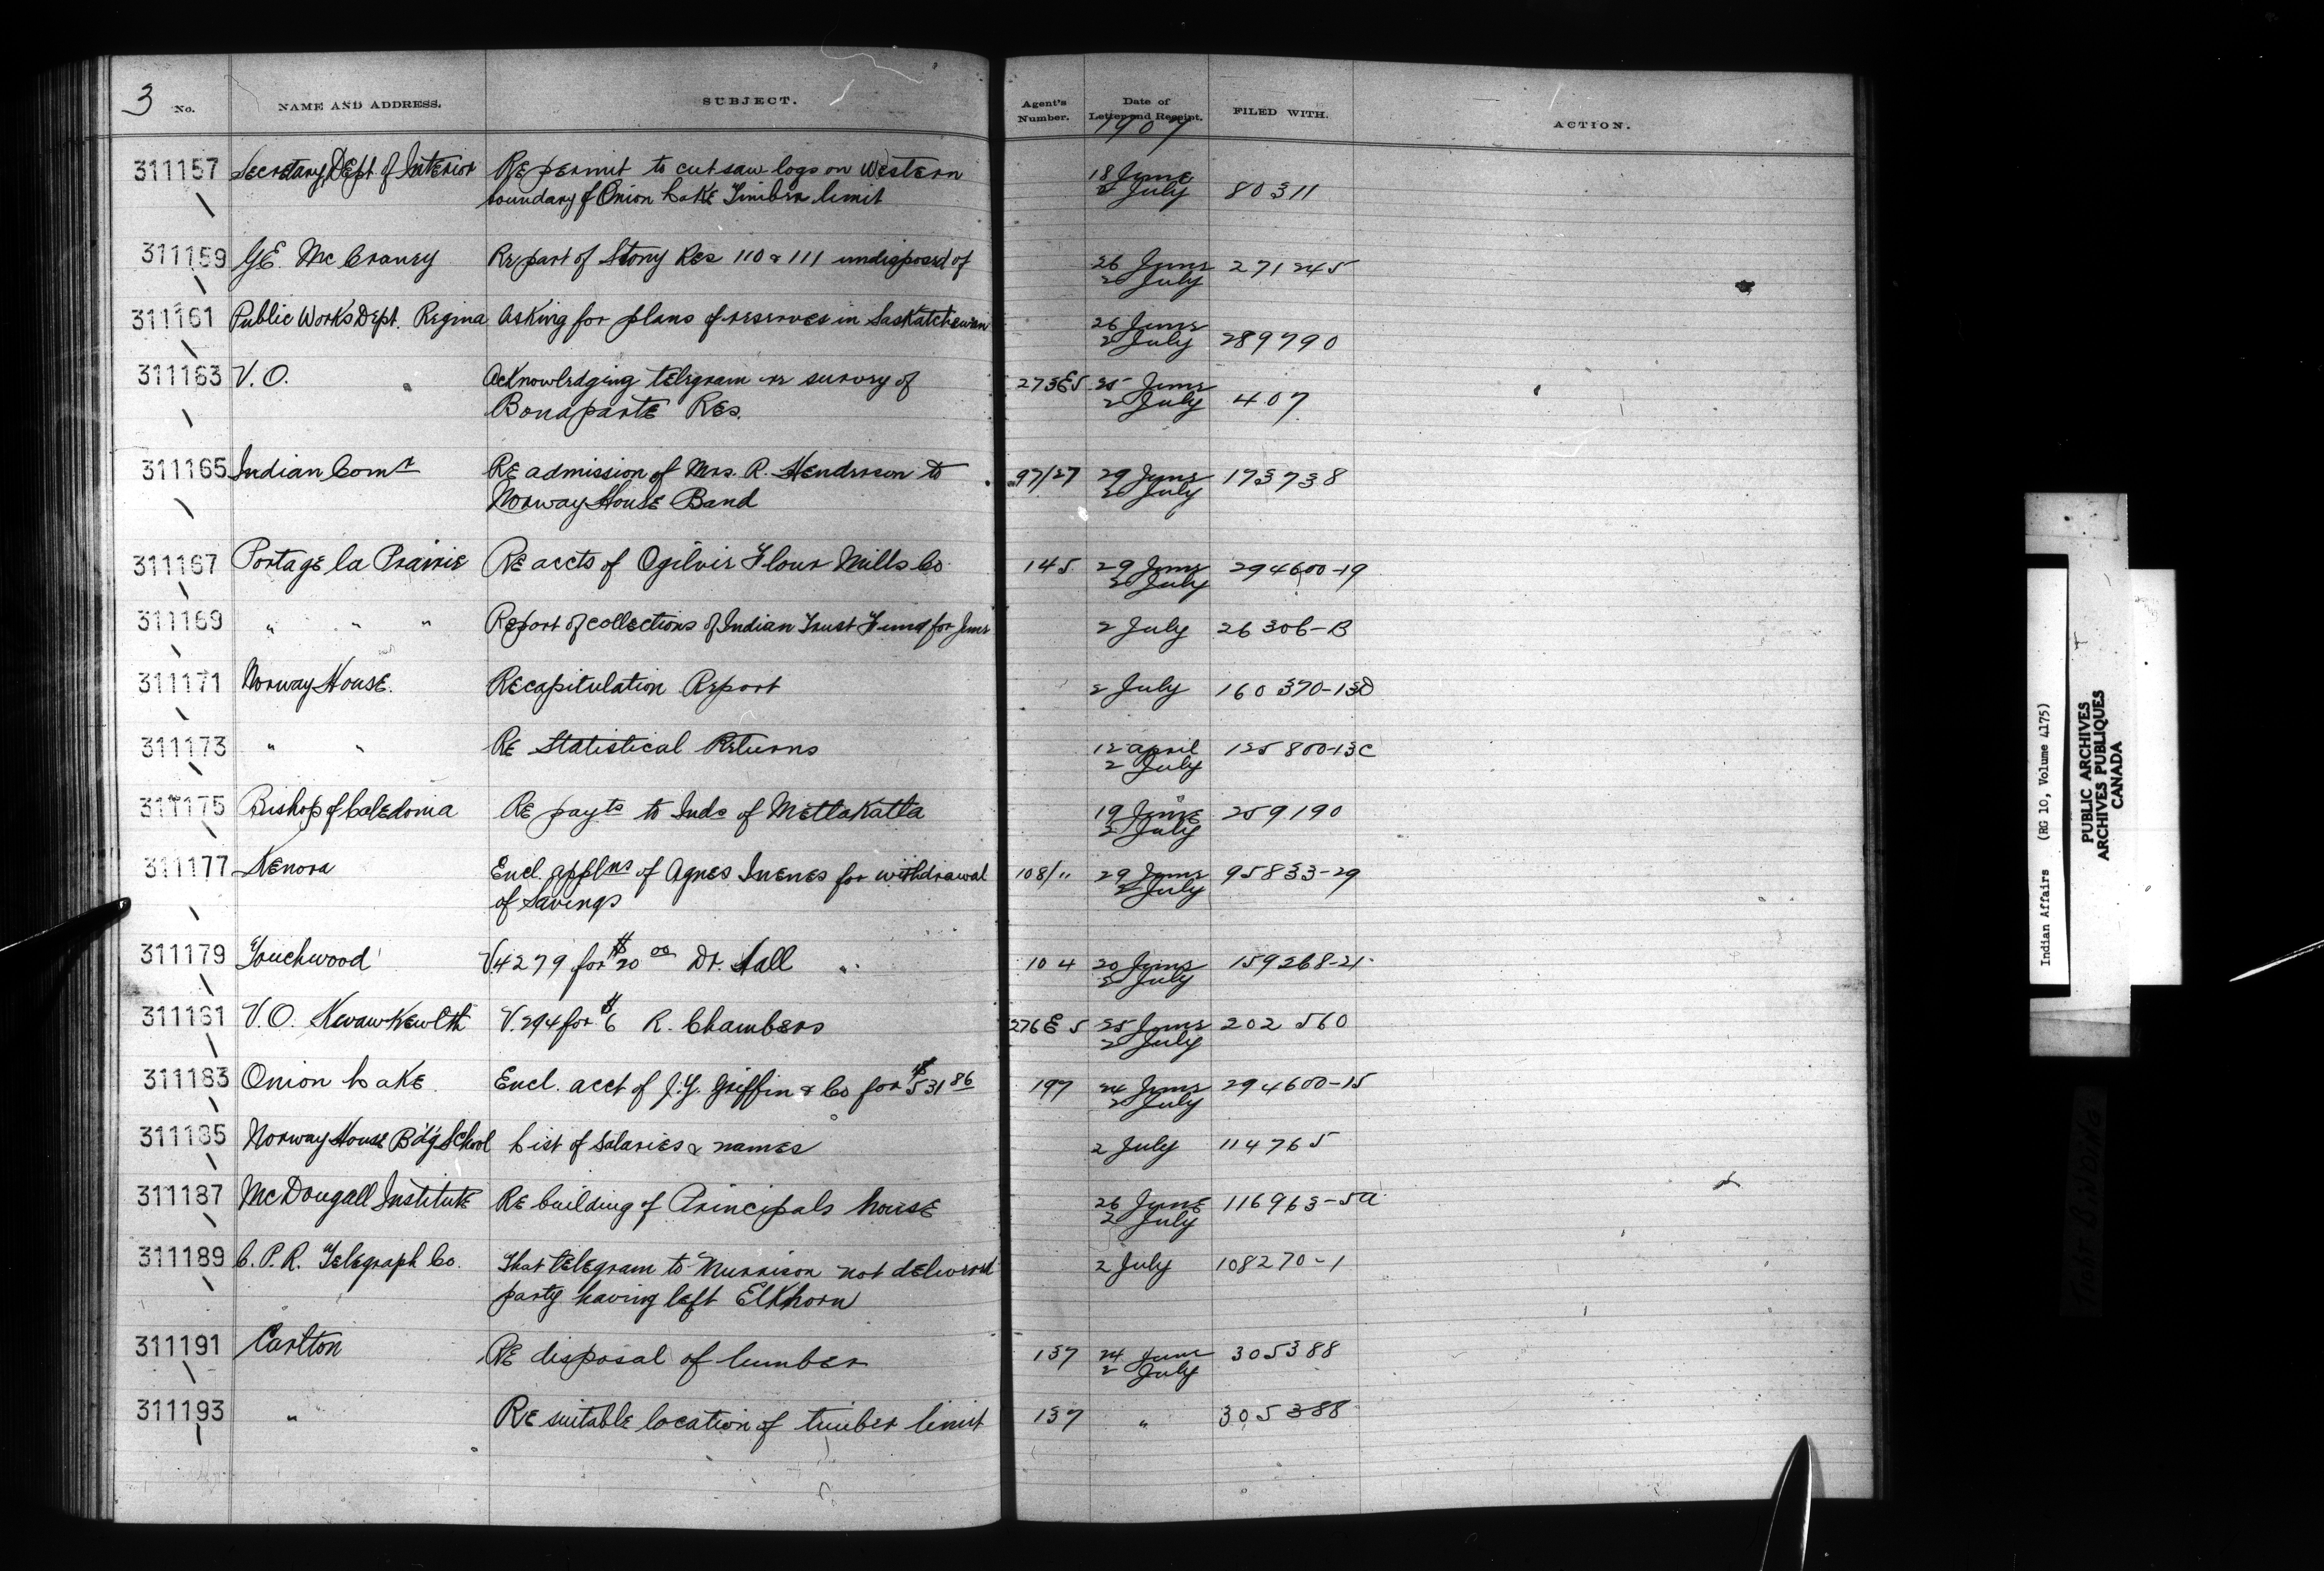 3 No. NAME AND ADDRESS. SUBJECT. Agent's Number. Date of Letter and Receipt. FILED WITH. ACTION.
1907
311157 Secretary, Dept of Interior Re permit to cut saw logs on Western 18 June
boundary of Onion Lake Timber limit 2 July 80311
311159 G.E. McCraney Re part of Stony Res 110 & 111 undisposed of 26 June 271245
2 July
311161 Public Works Dept. Regina Asking for plans of reserves in Saskatchewan 26 June
2 July 289790
311163 V.O. Acknowledging telegram re survey of 273E5 25 June
Bonaparte Res. 2 July 407
311165 Indian Comr Re admission of Mrs. R. Henderson to 97/27 29 June 173738
Norway House Band 2 July
311167 Portage la Prairie Re accts of Ogilvie Flour Mills Co. 145 29 June 294600-19
2 July
311169 " " " Report of collections of Indian Trust Fund for June 2 July 26306-B
311171 Norway House. Recapitulation Report 2 July 160370-13D
311173 " " Re Statistical Returns 12 April 125800-13C
2 July
311175 Bishop of Caledonia Re payts to Inds of Metlakatla 19 June 259190
2 July
311177 Kenora Encl. applns of Agnes Inenes for withdrawal 108/11 29 June 95833-29
of Savings 2 July
311179 Touchwood V.4279 for $20 00 Dr. Hall 104 20 June 159268-21
2 July
311181 V.O. Kwawkewlth V.294 for $6 R. Chambers 276E5 25 June 202560
2 July
311183 Onion Lake. Encl. acct of J.Y. Griffin & Co for $531 86 197 24 June 294600-15
2 July
311185 Norway House B'd'g School List of Salaries & names 2 July 114765
311187 McDougall Institute Re building of Principals house 26 June 116963-5A
2 July
311189 C.P.R. Telegraph Co. That telegram to Murrison not delivered 2 July 108270-1
party having left Elkhorn
311191 Carlton Re disposal of lumber 137 24 June 305388
2 July
311193 " Re suitable location of timber limit 137 " 305388
Indian Affairs (RG 10, Volume 4175)
PUBLIC ARCHIVES
ARCHIVES PUBLIQUES
CANADA
TIGHT BINDING